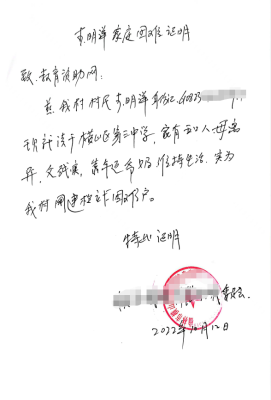 李明洋家庭困难证明
敬:教育资助网:
兹我村村民李明洋身份证
现就读于横山区第三中学,家有五口人母离
异,父残疾,靠年迈爷奶维持生活.实为
我村建档立卡困难户。
特此证明
委会.
2022年10月12日